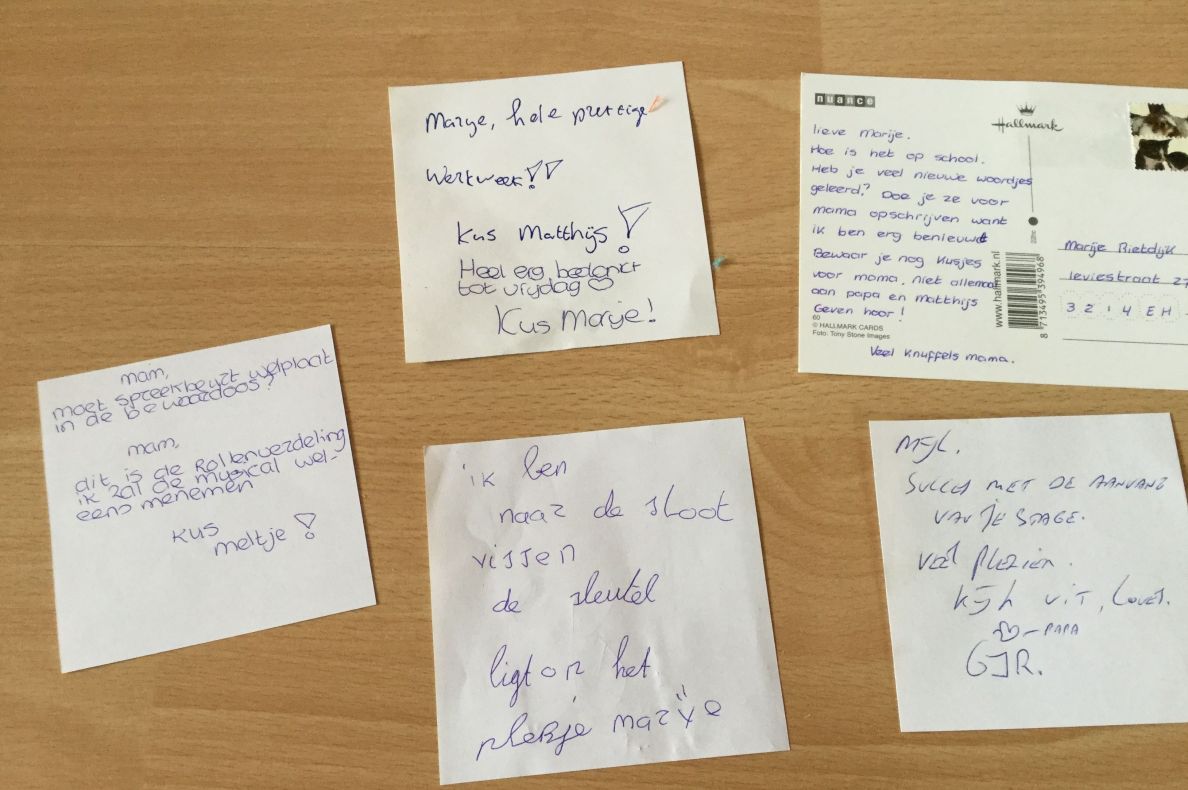 Marije, hele prettige
Werkweek!!
Kus Matthijs!
Heel erg bedankt
tot vrijdag
Kus Marije!
nuance
Hallmark
lieve Marije.
Hoe is het op school.
Heb je veel nieuwe woordjes
geleerd? Doe je ze voor
mama opschrijven want
ik ben erg benieuwd
Bewaar je nog kusjes
voor mama, niet allemaal
aan papa en matthijs
Geven hoor!
60
© HALLMARK CARDS
Foto: Tony Stone Images
Veel knuffels mama.
www.hallmark.nl
8 713495 394968
Marije Rietdijk
leviestraat 27
3214 EH
mam,
moet spreekbeurt welplaat
in de bewaardoos?
mam,
dit is de Rollenverdeling
ik zal de musical wel-
eens menemen
kus
meltje!
ik ben
naar de sloot
vissen
de sleutel
ligt op het
plekje marije
MYL.
SUCCES MET DE AANVANG
VAN JE STAGE.
VEEL PLEZIER.
KIJK UIT, LOVES.
-PAPA
GJR.